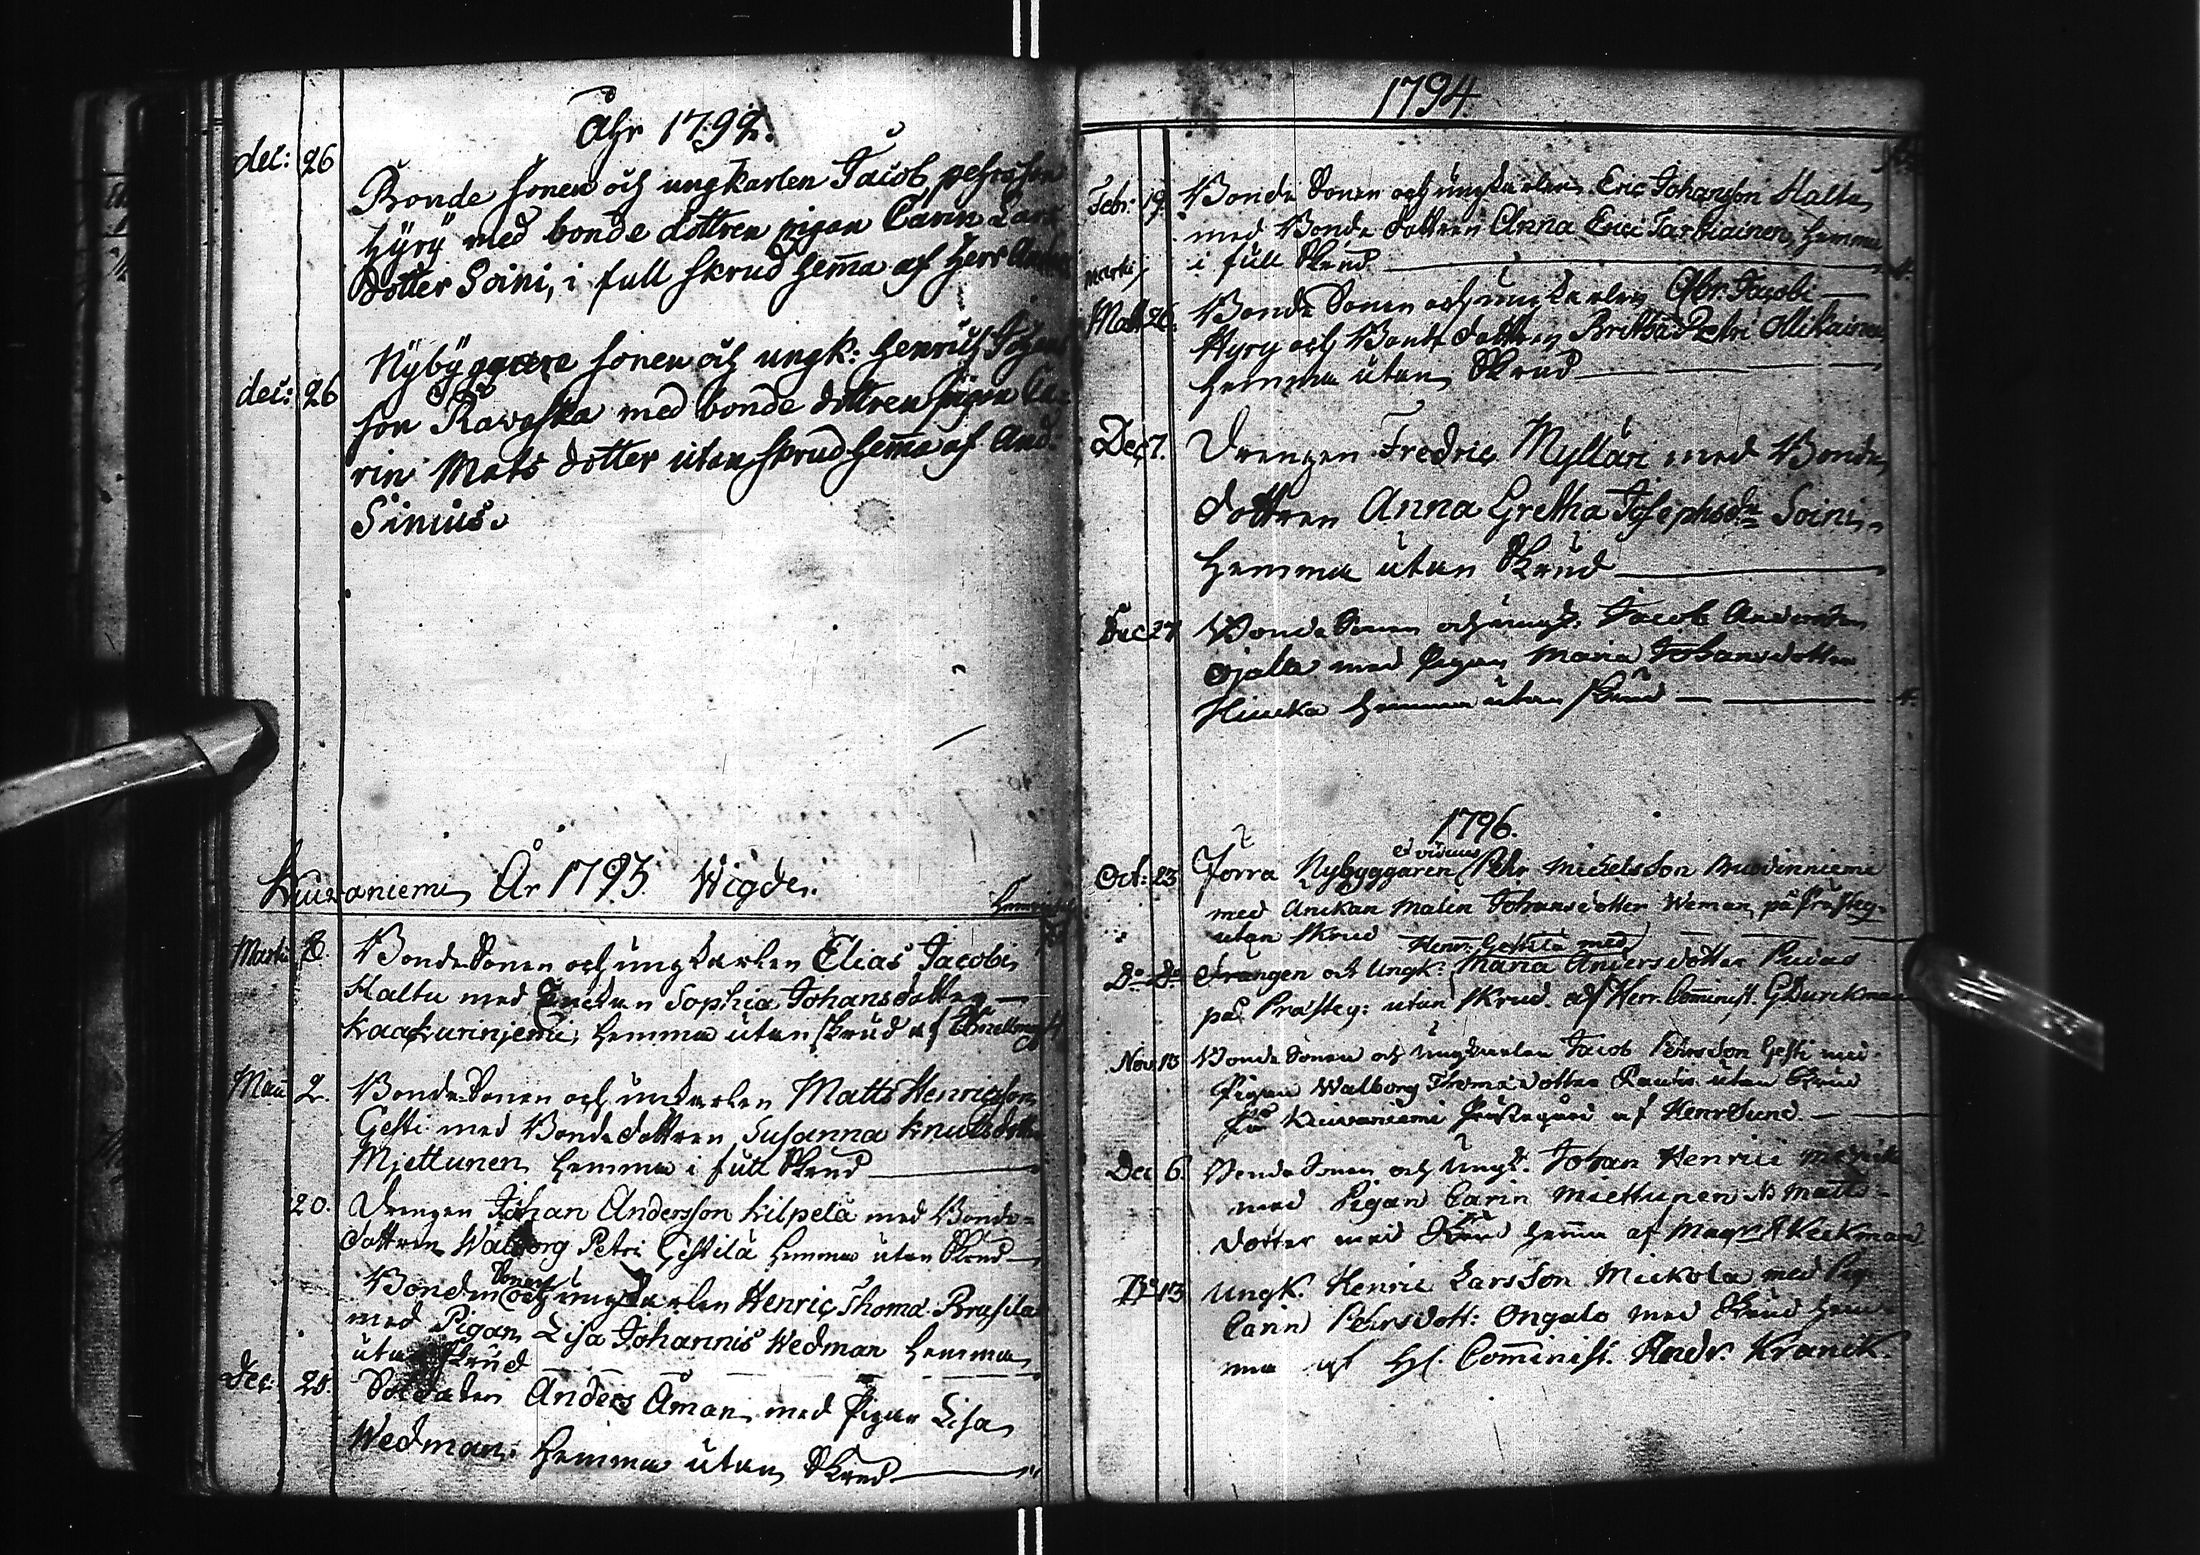 Åhr 1792.
dec: 26 Bonde sonen och ungkarlen Jacob pehrsson
Hÿrÿ med bonde dottren pigan Carin Lars
dotter Soini, i full skrud hem̄a af Herr And
dec: 26 Nÿbÿggare sonen och ungk: Henrich Johan
son Ravaska med bonde dottren pigan Ca=
rin Mats dotter utan skrud hem̄a af And:
Simius.
Kuivaniemi År 1793. Wigde.
Martii 8. Bonde Sonen och ungkarlen Elias Jacobi
Halttu med Enckan Sophia Johansdotter
Kaakurinjemi, hemma utan skrud af
Maii 2. Bonde Sonen och unkarlen Matts Henricsson
Gesti med Bonde dottren Susanna Knutsdotter
Mjettunen hemma i full Skrud
20. Drengen Johan Andersson Kilpelä med Bonde=
dottren Walborg Petri Gestilä hemma utan Skrud
Bonden Sonen och ungkarlen Henric Thomæ Brusila
med Pigan Lisa Johannis Wedman hemma
utan Skrud
Dec. 28. Soldaten Anders Åman med Pigan Lisa
Wedman. hemma utan Skrud
1794.
Febr: 19. Bonde Sonen och ungkarlen Eric Johansson Halttu
med Bonde dottren Anna Erici Tarkiainen, hemma
i full Skrud
Martii
26. Bonde Sonen och ungkarlen Abr. Jacobi
Hyry och Bonde dottren Britha Petri Ollikainen
hemma utan Skrud
Dec. 7. Drengen Fredric Mylläri med Bonde
dottren Anna Gretha Josephsdr Soini
hemma utan Skrud
Dec 27 Bonde Sonen och ungk. Jacob Andersson
Ojala med Pigan Maria Johansdotter
Hiucka hemma utan skrud
1796.
Oct: 23 Förra Nybyggaren et viduus Pehr Michelsson
med Änckan Malin Johansdotter Weman på Prästeg.
utan skrud
Do Do Drängen och Ungk: Henr: Gestilä med Maria Andersdotter Puias
på Prästeg: utan skrud af Herr Com̄inist. G Durckman
Nov. 13 Bonde Sonen och Ungkarlen Jacob Pehrsson Gesti med
Pigan Walborg Thomædotter utan Skrud
på Kuivaniemi Prästegård af Henr Sund.
Dec 6. Bonde Sonen och Ungk. Johan Henrici
med Pigan Carin Miettunen Matts=
dotter med Skrud hem̄a af Magr Keckman
Do 13 Ungk. Henric Larsson Mickola med Pig.
Carin Pehrsdott: Ongalo med Skrud hem=
ma af Hl. Com̄inist. Andr. Kranck.